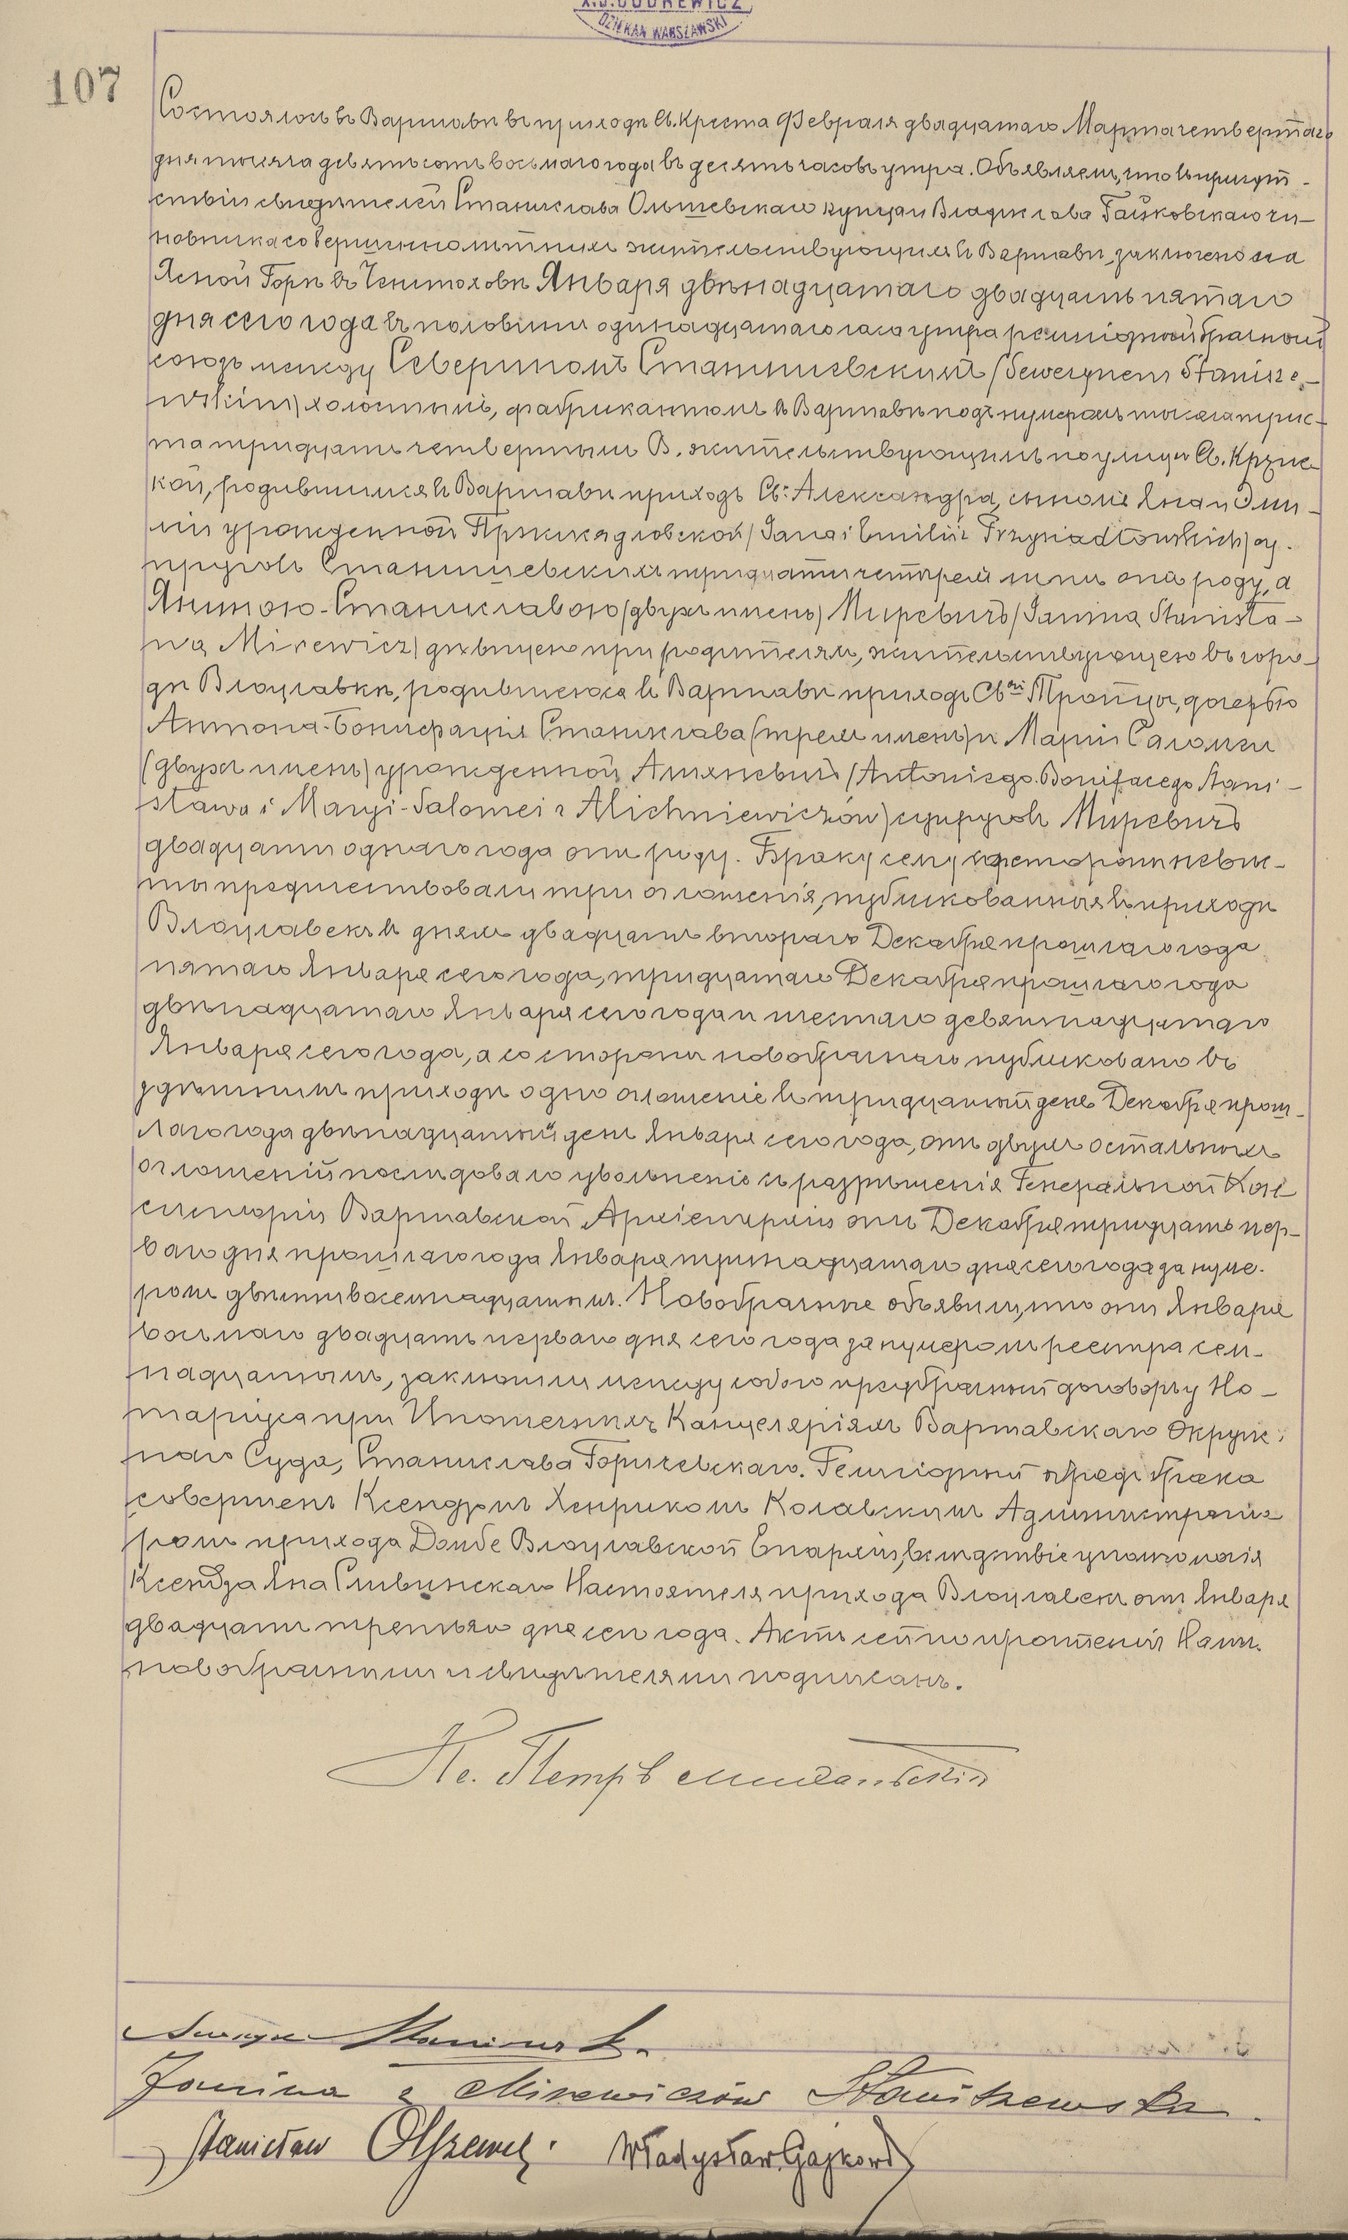 X.J.GODLEWICZ
DZIEKAN WARSZAWSKI
107
Состоялось въ Варшавѣ въ приходѣ Св. Креста Февраля двадцатаго Марта четвертаго
дня тысяча девятьсотъ восьмаго года въ десять часовъ утра. Объявляемъ, что въ присут-
ствіи свидѣтелей Станислава Ольшевскаго купца и Владислава Гайковскаго чи-
новника совершеннолѣтнихъ жительствующихъ въ Варшавѣ, заключено на
Ясной Горѣ въ Ченстоховѣ Января двѣнадцатаго двадцать пятаго
дня сего года въ половинѣ одинадцатаго часа утра религіозный брачный
союзъ между Севериномъ Станишевскимъ (Sewerynem Stanisze-
wskim) холостымъ, фабрикантомъ въ Варшавѣ подъ нумеромъ тысяча трис-
та тридцать четвертымъ В. жительствующимъ по улицѣ Св. Крзис-
кой, родившимся въ Варшавѣ приходѣ Св. Александра, сыномъ Яна и Эми-
ліи урожденной Пржиядловской (Jana i Emilii z Przyiadłowskich) су-
пруговъ Станишевскихъ тридцати четырехъ лѣтъ отъ роду, а
Яниною-Станиславою (двухъ именъ) Миревичъ (Janiną Stanisła-
wą Mirewicz) дѣвицею при родителяхъ, жительствующею въ горо-
дѣ Влоцлавкѣ, родившеюся въ Варшавѣ приходѣ Св. Троицы, дочерью
Антона-Бонифація Станислава (трехъ именъ) и Маріи Саломеи
(двухъ именъ) урожденной (Antoniego-Bonifacego Stani-
sława i Maryi-Salomei z Michniewiczów) супруговъ Миревичъ
двадцати одного года отъ роду. Браку сему со стороны невѣс-
ты предшествовали три оглашенія, публикованныя въ приходѣ
Влоцлавекъ въ дняхъ двадцать втораго Декабря прошлаго года
пятаго Января сего года, тридцатаго Декабря прошлаго года
двѣнадцатаго Января сего года и шестаго девятнадцатаго
Января сего года, а со стороны новобрачнаго публиковано въ
здѣшнемъ приходѣ одно оглашеніе въ тридцатый день Декабря прош-
лаго года двѣнадцатый день Января сего года, отъ двухъ остальныхъ
оглашеній послѣдовало увольненіе съ разрѣшенія Генеральной Кон-
систоріи Варшавской Архіепархіи отъ Декабря тридцать пер-
ваго дня прошлаго года Января тринадцатаго дня сего года за нуме-
ромъ двѣсти восемнадцатымъ. Новобрачные объявили, что они Января
восьмаго двадцать перваго дня сего года за нумеромъ реестра сем-
надцатымъ, заключили между собою предбрачный договоръ у Но-
таріуса при Ипотечныхъ Канцеляріяхъ Варшавскаго Окруж-
наго Суда, Станислава Горичевскаго. Религіозный обрядъ брака
совершенъ Ксендзомъ Хенрикомъ Колавскимъ Администрато-
ромъ прихода Домбе Влоцлавской Епархіи, вслѣдствіе уполномочія
Ксендза Яна Сливинскаго Настоятеля прихода Влоцлавекъ отъ Января
двадцать третьяго дня сего года. Актъ сей по прочтеніи Нами,
новобрачными и свидѣтелями подписанъ.
Кс. Петръ
Seweryn Staniszewski
Janina z Mirewiczów Staniszewska.
Stanisław Olszewski. Władysław Gajkowski